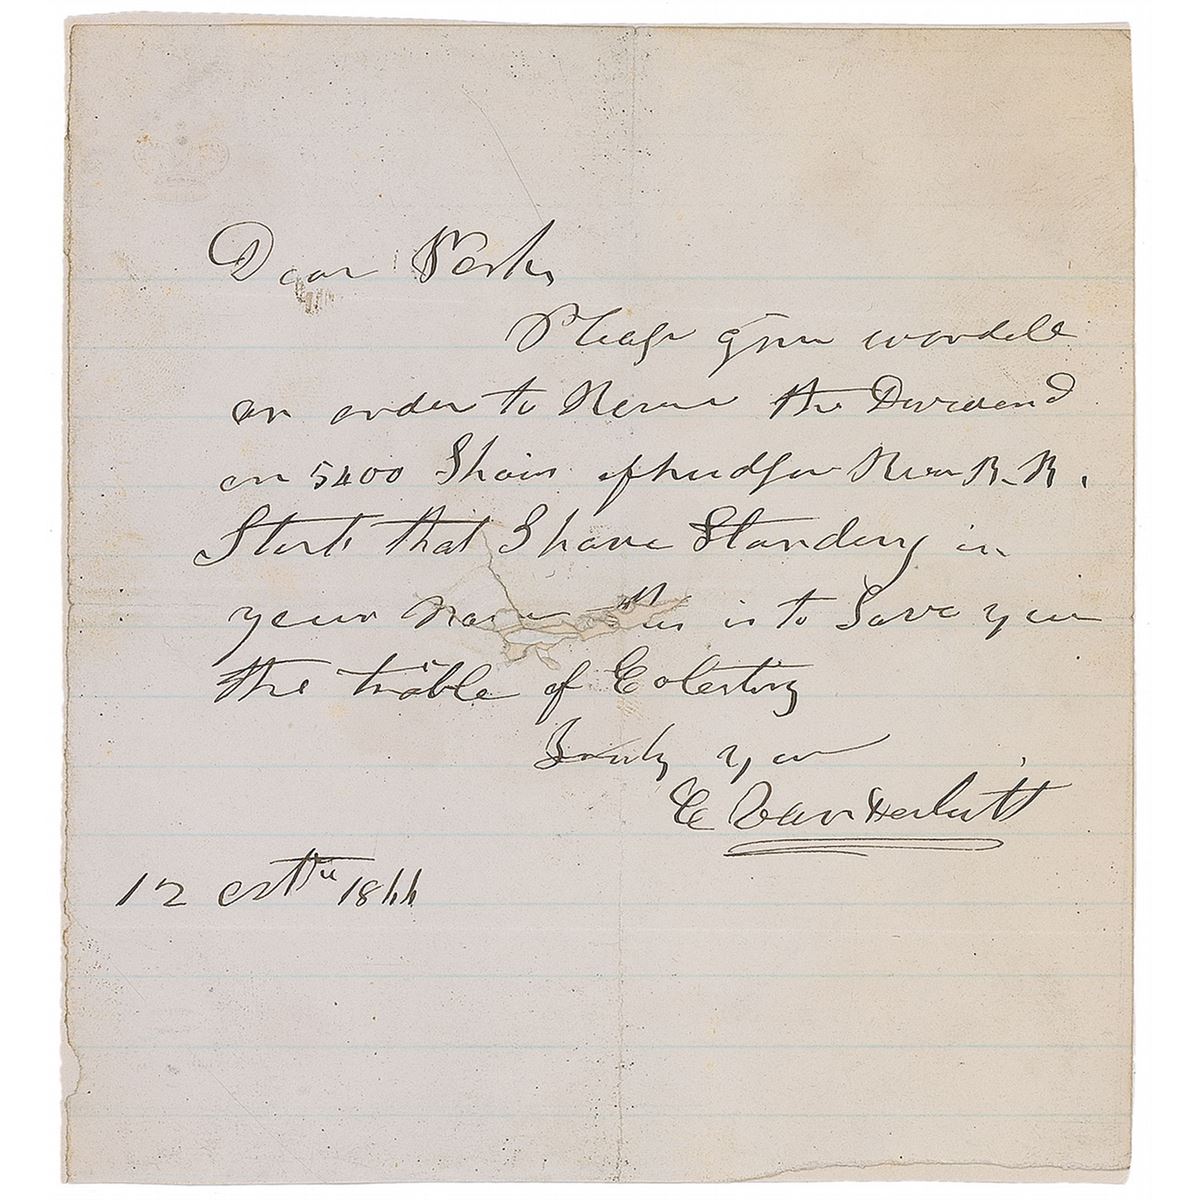 Dear
Please give wardell
an order to Receve the Devedend
on 5400 Shairs of hudson River R. R.
Stock that I have Standing in
your name this is to Save you
the troble of Colecting
Truly your
C Vanderbilt
12 1866